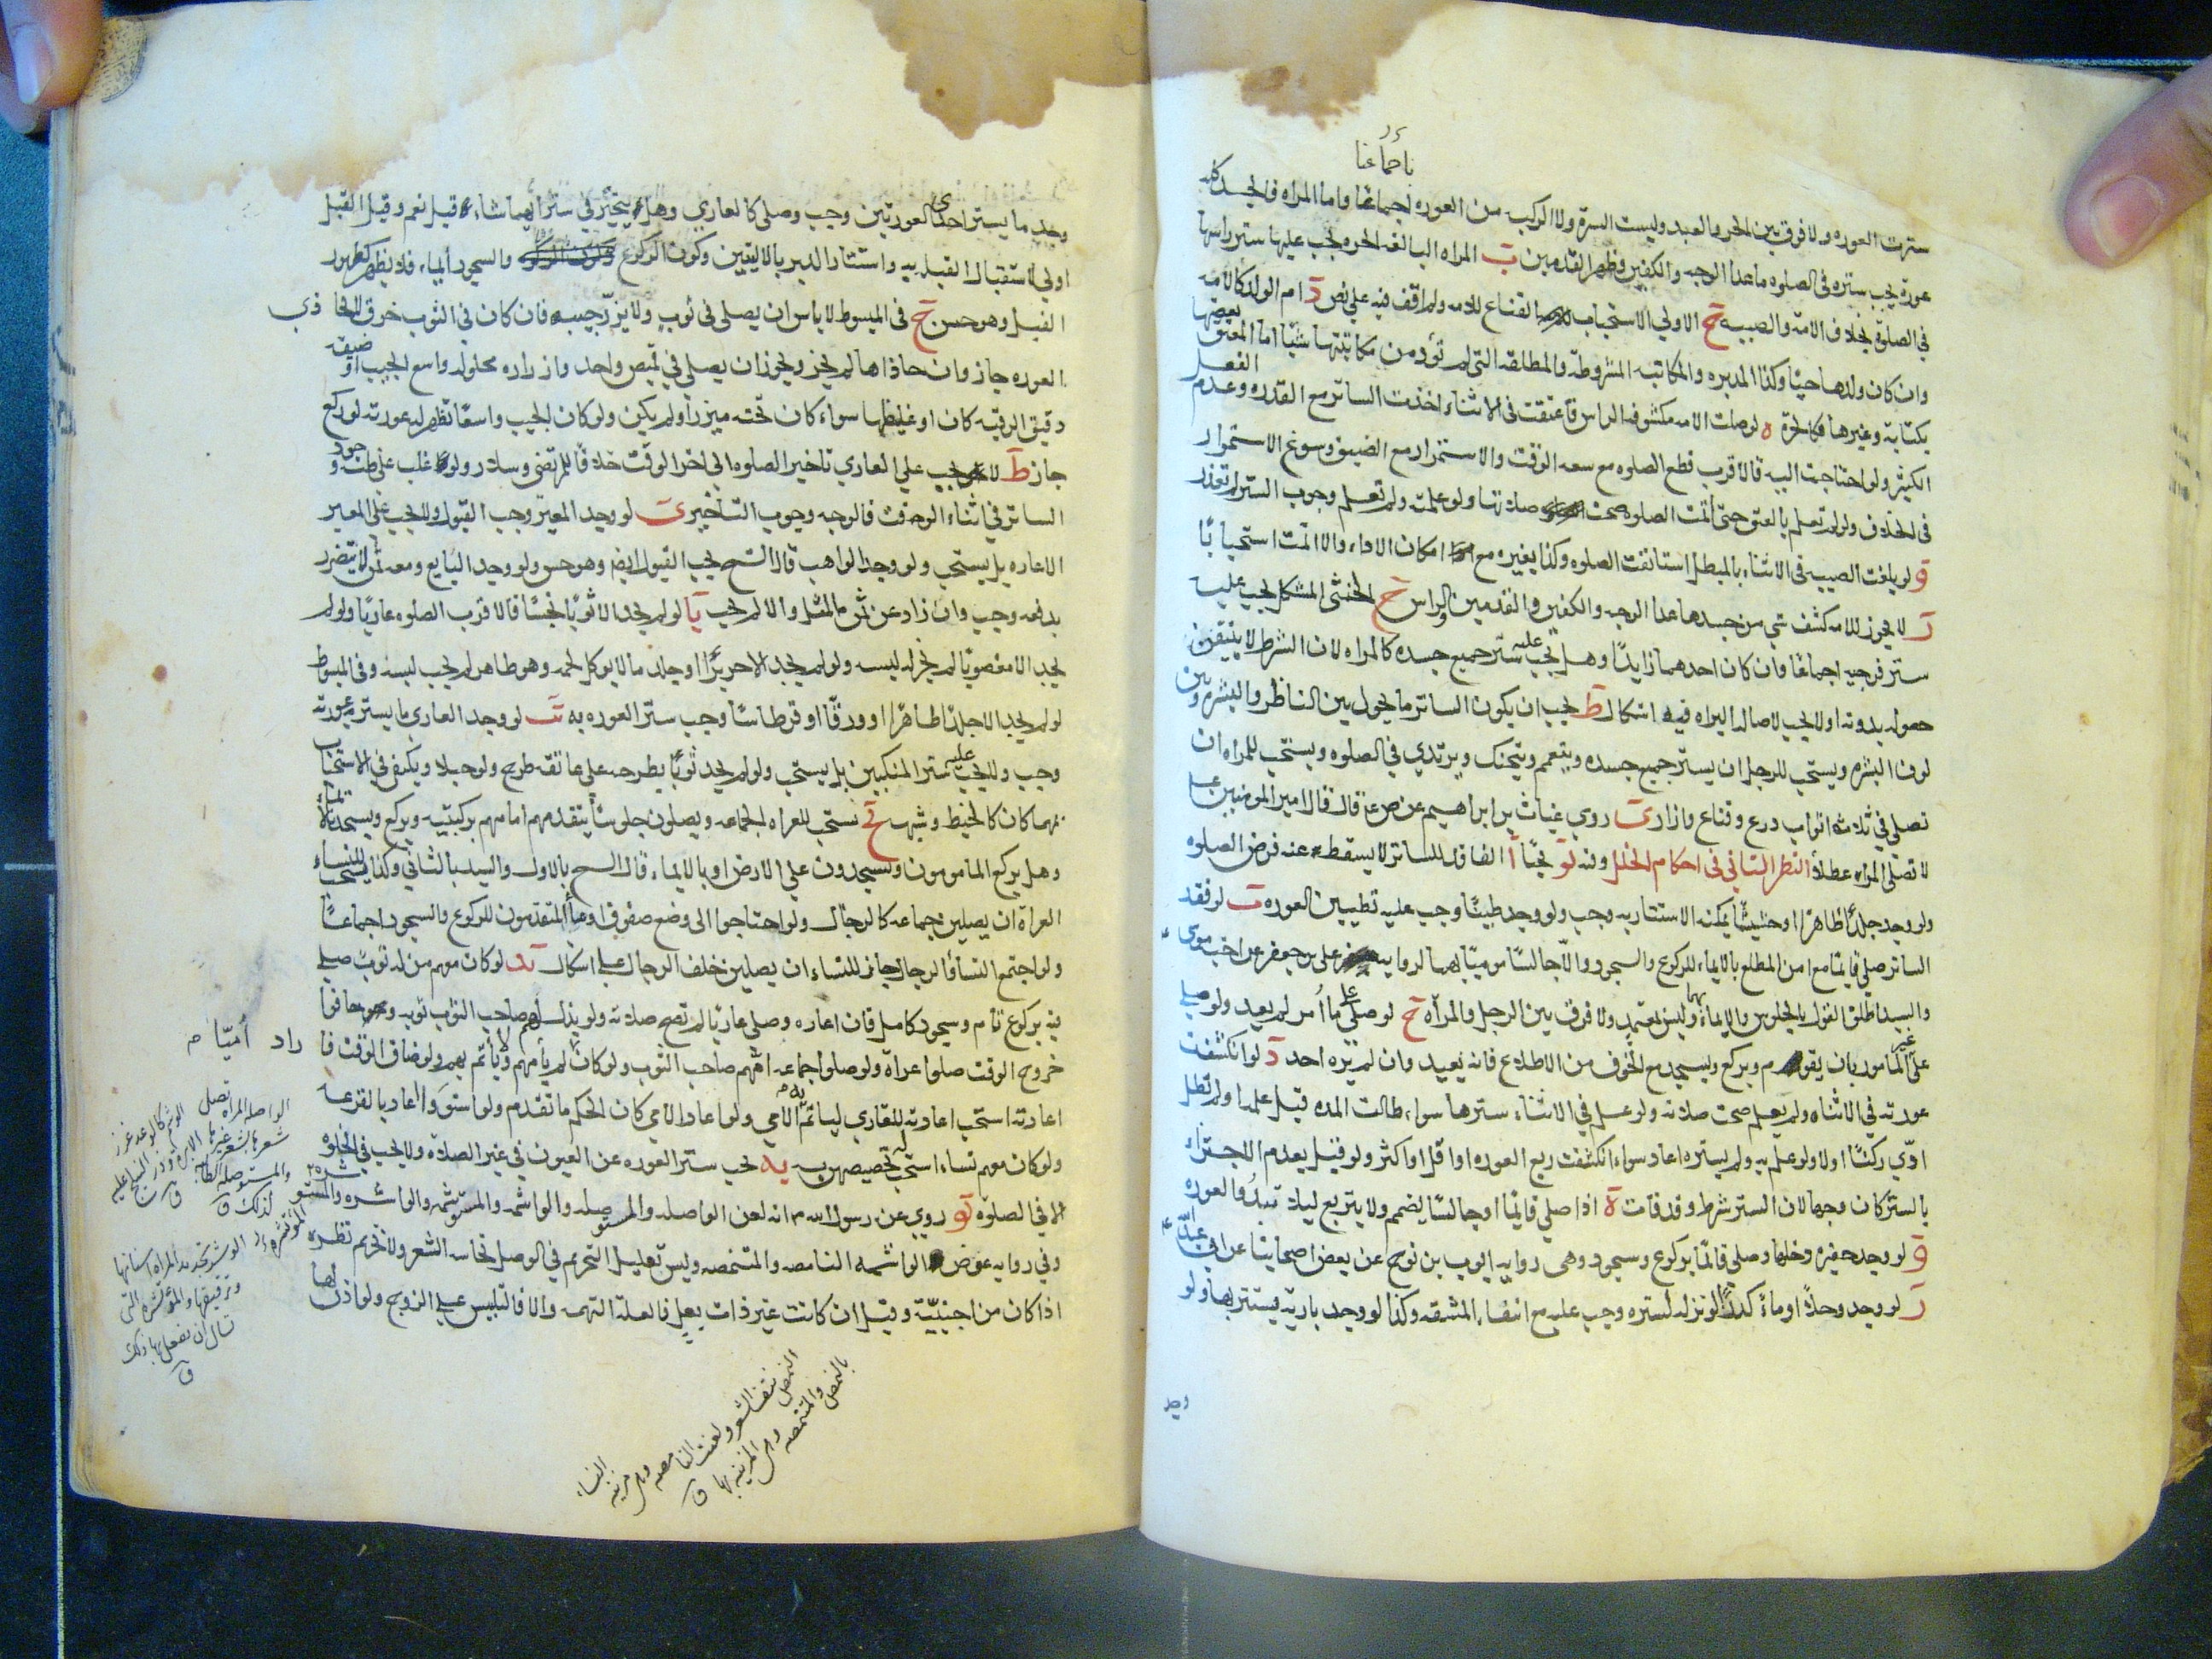 باجماعنا
سترت العوره ولا فرق بين الحر والعبد وليست السرة ولا الركبه من العوره اجماعًا واما المراه فالجسد كله
عورة يجب ستره فى الصلوه ما عدا الوجه والكفين وظهر القدمين ب المراه البالغه الحره يجب عليها ستر راسها
في الصلوة بخلاف الامة والصبيه ج الاولي الاستحباب القناع للامه ولم اقف فيه على نص د ام الولد كالامه
وان كان ولدها حيّا وكذا المدبره والمكاتبه المشروطة والمطلقه التى لم تؤد من مكاتبتها شيّا اما المعتق بعضها
بكتابة وغيرها فكالحرّة ه لو صلت الامه مكشوفه الراس فاعتقت فى الاثناء اخذت الساتر مع القدره وعدم الفعل
الكثير ولو احتاجت اليه فالاقرب قطع الصلوه مع سعه الوقت والاستمرار مع الضيق وسوغ الاستمرار
فى الخلاف ولو لم تعلم بالعتق حتى أتمت الصلوه صحت صلاتها ولو علمت ولم تعلم وجوب الستر لم تعذر
و لو بلغت الصبيه فى الاثناء بالمبطل استانفت الصلوه وكذا بغيره مع امكان الاداء والا اتمت استحبابًا
ز لا يجوز للامه كشف شي من جسدها عدا الوجه والكفين والقدمين والراس ح الخنثى المشكل يجب عليه
ستر فرجيه اجماعًا وان كان احدهما زايدًا وهل يجب عليه ستر جميع جسده كالمراه لان الشرط لا يتيقن
حصوله بدونه او لا يجب لاصاله البراه فيه اشكال ط يجب ان يكون الساتر ما يحول بين الناظر والبشره وبين
لون البشره ويستحب للرجل ان يستر جميع جسده ويتعمم ويتحنك ويرتدي فى الصلوه ويستحب للمراه ان
تصلى في ثلاثه اثواب درع وقناع وازار ى روي غياث بن ابراهيم عن ص ع قال قال امير المومنين ع
لا تصلى المراه عطلاً النظر الثانى فى احكام الخلل وفيه لو بحثا ا الفاقد للساتر لا يسقط عنه فرض الصلوه
ولو وجد جلدًا طاهرًا او حشيشًا يمكنه الاستتار به وجب ولو وجد طينًا وجب عليه تطيين العوره ب لو فقد
الساتر صلى قايمًا مع امن المطلع بالايماء للركوع والسجود والا جالسًا موميًا بهما لروايه على بن جعفر عن اخيه موسى ع
والسيد اطلق القول بالجلوس والايماء بهما وليس بمعتمد ولا فرق بين الرجل والمراه ج لو صلى على ما أمر لم يعد ولو صلى
على غير المامور بان يقوم ويركع ويسجد مع الخوف من الاطلاع فانه يعيد وان لم يره احد د لو انكشفت
عورته في الاثناء ولم يعلم صحت صلاته ولو علم في الاثناء سترها سواء طالت المده قبل علمه او لم تطل
ادّي ركنًا او لا ولو علم به ولم يستره اعاد سواء انكشفت ربع العوره او اقل او اكثر ولو قيل بعدم الاجتزاء
بالستر كان وجهًا لان الستر شرط وقد فات ه اذا صلى قايمًا او جالسًا يضمم ولا يتربع ليلا تبدُ والعوره
و لو وجد حفيره دخلها وصلى قائمًا بركوع وسجود وهى روايه ايوب بن نوح عن بعض اصحابنا عن ابى عبدالله ع
ز لو وجد وحلاً او ماءً كدرًا لو نزله لستره وجب عليه مع انتفاء المشقه وكذا لو وجد باريّة يستتر بها ولو
وجد
وجد ما يستر احدى العورتين وجب وصلى كالعاري وهل يتخير في ستر ايهما شاء قيل نعم وقيل القبل
اولى لاستقبال القبله به واستتار الدبر بالاليتين وكون الركوع والسجود أيماء فلا يظهر كظهور
القبل وهو حسن ح فى المبسوط لا باس ان يصلى فى ثوب ولا يزرّ جيبه فان كان في الثوب خرق لا يحاذي
العوره جاز وان حاذاها لم يجز ويجوز ان يصلى في قميص واحد وازراره محلوله واسع الجيب او ضيقه
دقيق الرقبه كان او غليظها سواء كان تحته ميزر أولم يكن ولو كان الجيب واسعًا تظهر له عورته لو ركع
جاز ط لا يجب على العاري تاخير الصلوه الى اخر الوقت خلافًا للمرتضى وسلار ولو غلب على ظنه وجود
الساتر في اثناء الوقت فالوجه وجوب التاخير ى لو وجد المعير وجب القبول ولا يجب على المعير
الاعاره بل يستحب ولو وجد الواهب قال الشيخ يجب القبول ايضا وهو حسن ولو وجد البايع ومعه ثمن لا يتضرر
بدفعه وجب وان زاد عن ثمن المثل والا لم يجب يا لو لم يجد الا ثوبًا نجسًا فالاقرب الصلوه عاريًا ولو لم
يجد الا مغصوبًا لم يجز له لبسه ولو لم يجد الا حريرًا او جلد ما لا يوكل لحمه وهو طاهر لم يجب لبسه وفى المبسوط
لو لم يجد الا جلدًا طاهرًا او ورقًا او قرطاسًا وجب ستر العوره به يب لو وجد العاري ما يستر به عورته
وجب ولا يجب عليه ستر المنكبين بل يستحب ولو لم يجد ثوبًا يطرحه على عاتقه طرح ولو حبلا ويكفى في الاستحباب
مهما كان كالخيط وشبهه يج يستحب للعراه الجماعه ويصلون جلوسًا يتقدمهم امامهم بركبتيه ويركع ويسجد بالأيماء
وهل يركع المامومون ويسجدون على الارض او بالايماء قال الشيخ بالاول والسيد بالثاني وكذا يستحب للنساء
العراة ان يصلين جماعه كالرجال ولو احتاجوا الى وضع صفوف اومأ المتقدمون للركوع والسجود اجماعًا
ولو اجتمع النساء والرجال جاز للنساء ان يصلين خلف الرجال على اشكال يد لو كان معهم من له ثوب صلى
فيه بركوع تام وسجود كامل فان اعاره وصلى عاريًا لم تصح صلاته ولو بذل لهم صاحب الثوب ثوبه وخافوا
خروج الوقت صلوا عراة ولو صلوا جماعه امّهم صاحب الثوب ولو كان لم يأمهم ولا يأتم بهم ولو ضاق الوقت فا
راد أميّا م
اعادته استحب اعادته للقاري ليأتم به الامي ولو اعاد الامي كان الحكم ما تقدم ولو استووا اعاد بالقرعه
ولو كان معهم نساء استحب له تخصيصهن به يه يجب ستر العوره عن العيون في غير الصلاة ولا يجب في الخلوه
الا في الصلوة لو روي عن رسول الله انه لعن الواصله والمستوصله والواشمه والمستوشمه والواشره والمستوشره
وفى روايه عوض الواشمه النامصه والمتنمصه وليس تعليل التحريم في الوصل نجاسه الشعر ولا تحريم نظره
اذا كان من اجنبيّة وقيل ان كانت غير ذات بعل فالعلة التهمه والا فالتلبيس على الزوج ولو اذن لها
الواصله المراه تصل
شعرها بشعر غيرها
والمستوصله الطالبه
لذلك ق
الوشم كالوعد غرز
الابرة وذر النيلج عليه
ق
الوشر تحديد المراه اسنانها
وترقيقها والموتشره التى
تسال ان يفعل بها ذلك
ق
النمص نتف الشعر ولعنت النامصه وهى مزينه النساء
بالنمص والمتنمصه وهى المزينه بها ق